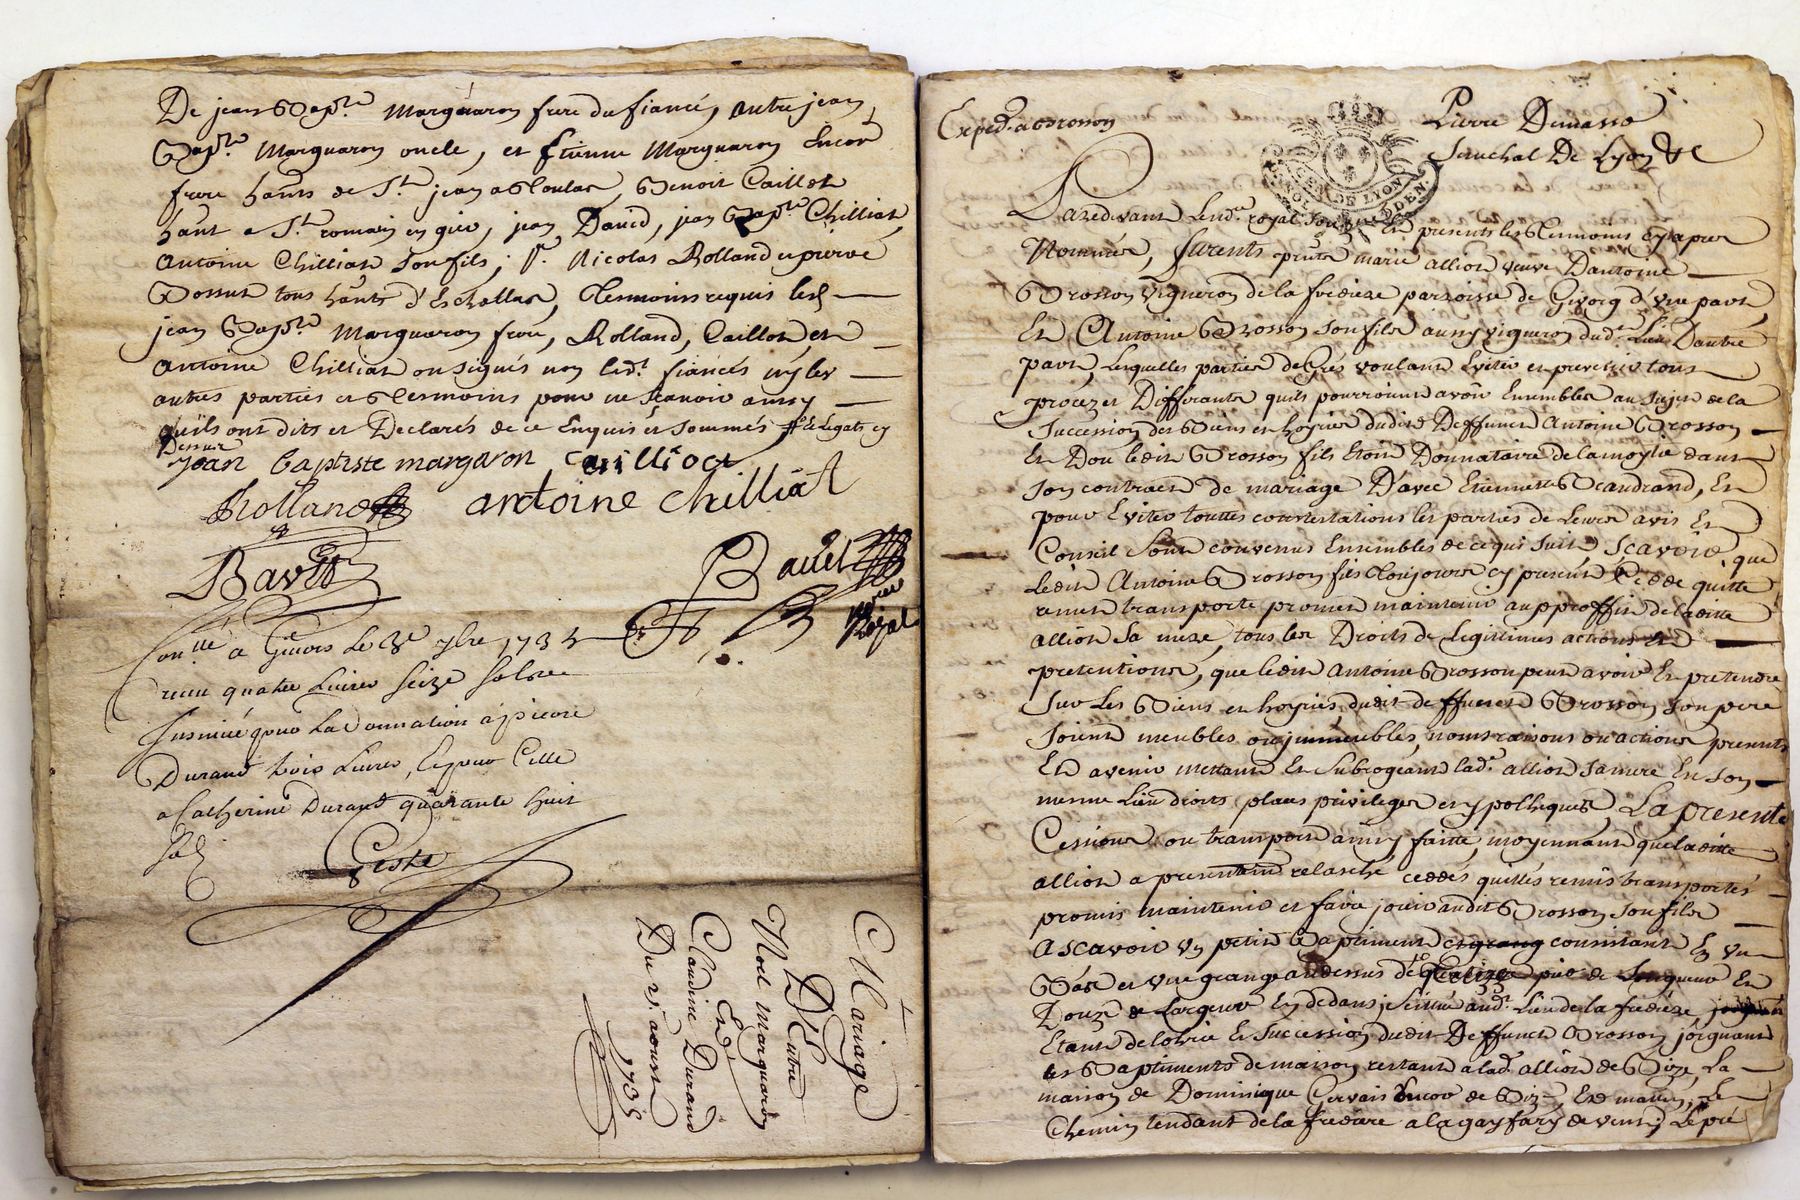 De jean Bap.te Marquaron frere du fiancé, autre jean
Bap.te Marquaron oncle, et Etienne Marquaron Encor
frere hants de S.t jean a Toulas, Benoit Caillot
hant a S.t romain en gier, jean David, jean Bap.te Chilliat,
Antoine Chilliat son fils, S.r Nicolas Rolland et pierre
Bossut tous hants d'Eschallas, Tesmoins requis lesd
jean Bap.te Marquaron frere, Rolland, Caillot, et
Antoine Chilliat on signés non lesd.t fiancés ny les
autres parties et Tesmoins pour ne sçavoir aussy
qu'ils ont dits et Declarés de ce Enquis et sommés
jean baptiste margaron cailliot
Rolland antoine chilliat
Bavet Bavet
No.re Royal
Con.llé a Givors le 7bre 1735
receu quatre Livres seize sols
Insinué pour la Donnation à pierre
Durand trois Livres, Et pour Celle
a Catherine Durand quarante huit
sols
Geste
Mariage
D'Entre
Noel Marquaron
Et
Claudine Durand
Du 21 aoust 1735
Exped. a Brosson
Pierre Dumasso
Senechal De Lyon &c
GEN DE LYON
Pardevant Le no.re royal Soussigné Et presents les Tesmoins cy apres
Nommés, furents pnts marie allion veuve D'antoine
Brosson vigneron de la fredière parroisse de Givors d'une part,
Et Antoine Brosson son fils aussy vigneron dud.t Lieu D'autre
part, Lesquelles parties de Grés voulant Eviter et prevenir tous
procez et Differants quils pourroient avoir Ensembles au sujet de la
Succession des Biens et hoyries dudit Deffunct Antoine Brosson
Et Dou ledit Brosson fils Etoit Donnataire de la moytié dans
son contract de mariage D'avec Etiennette Beaudrand, Et
pour Eviter touttes contestations les parties de Leurs avis Et
Conseil Sont convenus Ensembles de ce qui suit, Sçavoir que
Ledit Antoine Brosson fils Toujours cy present Cedde quitte
remet transporte promet maintenir au proffit de laditte
allion sa mere, tous les Droits de Legitimes actions Et
pretentions, que ledit Antoine Brosson peut avoir Et pretendre
Sur Les Biens et hoyries dudit deffunct Brosson son pere
soient meubles ou jmmeubles, noms raisons ou actions presents
Et avenir mettant Et Subrogeant lad.e allion sa mere En son
mesme Lieu droits places privileges et ypotheques, La presente
Cession ou transport ainsy faitte, moyennant que laditte
allion a presentemt relasché ceddés quittés remis transportés
promis maintenir et faire jouir audit Brosson son fils
Ascavoir un petit Baptiment consistant En un
Bas et une grange au dessus de pied de Longueur Et
Douze de Largeur En dedans, Scittué aud.t Lieu de la fredière
Etant de lohrie Et Succession dudit Deffunct Brosson, joignant
les Baptiments de maison restant a lad.e allion de Bize, La
maison de Dominique Gervais Encor de Bize Et matin, Le
Chemin tendant de la fredière a la gayfary de vent, Le pré